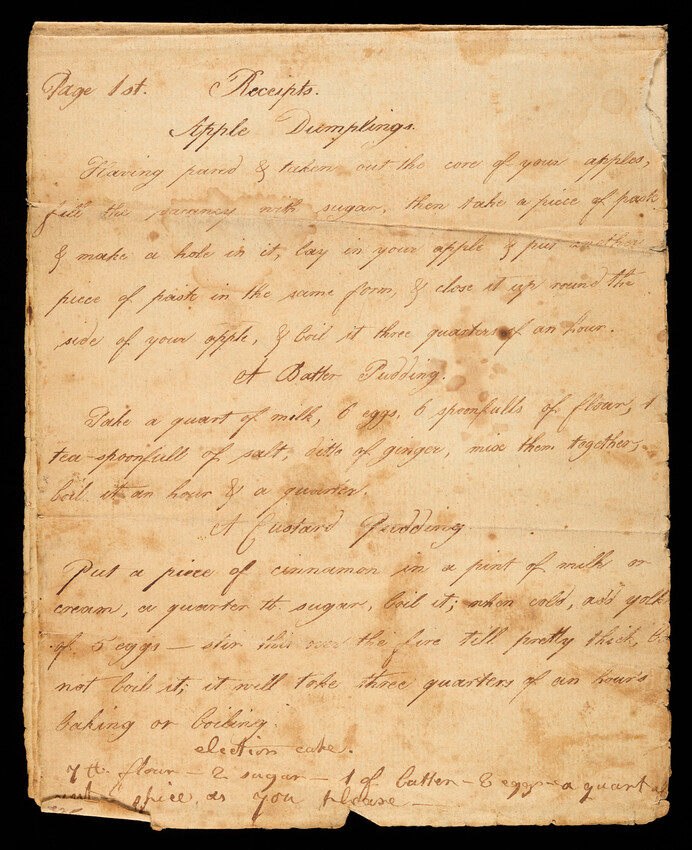 Page 1st. Receipts.
Apple Dumplings.
Having pared & taken out the core of your apples,
fill the vacancy with sugar, then take a piece of past
& make a hole in it, lay in your apple & put another
piece of past in the same form, & close it up round the
side of your apple, & boil it three quarters of an hour.
A Batter Pudding.
Take a quart of milk, 6 eggs, 6 spoonfulls of flour, 1
tea-spoonfull of salt, ditto of ginger, mix them together,
boil it an hour & a quarter.
A Custard Pudding
Put a piece of cinnamon in a pint of milk or
cream, a quarter tt. sugar, boil it; when cold, add yolk
of 5 eggs — stir this over the fire till pretty thick, b
not boil it; it will take three quarters of an hour's
baking or boiling.
election cake.
7 tt. flour — 2 sugar — 1 of butter — 2 eggs — a quart of
spice, as you please —